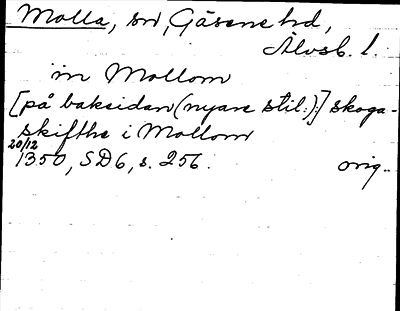 Molla, sn, Gäsene hd,
Älvsb. l.
in Mollom
[på baksidan (nyare stil:):] skoga-
skifthe i Mollom
20/12 1350, SD6, s. 256. orig.